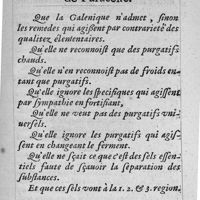 de Paracelse.
Que la Galenique n'admet, sinon
les remedes qui agissent par contrarieté des
qualitez élementaires.
Qu'elle ne reconnoist que des purgatifs
chauds.
Qu'elle n'en reconnoist pas de froids en-
tant que purgatifs.
Qu'elle ignore les specifiques qui agissent
par sympathie en fortifiant,
Qu'elle ne veut pas des purgatifs uni-
uersels.
Qu'elle ignore les purgatifs qui agis-
sent en changeant le ferment.
Qu'elle ne sçait ce que c'est des sels essen-
tiels faute de sçauoir la separation des
substances.
Et que ces sels vont à la 1. 2. & 3. region.